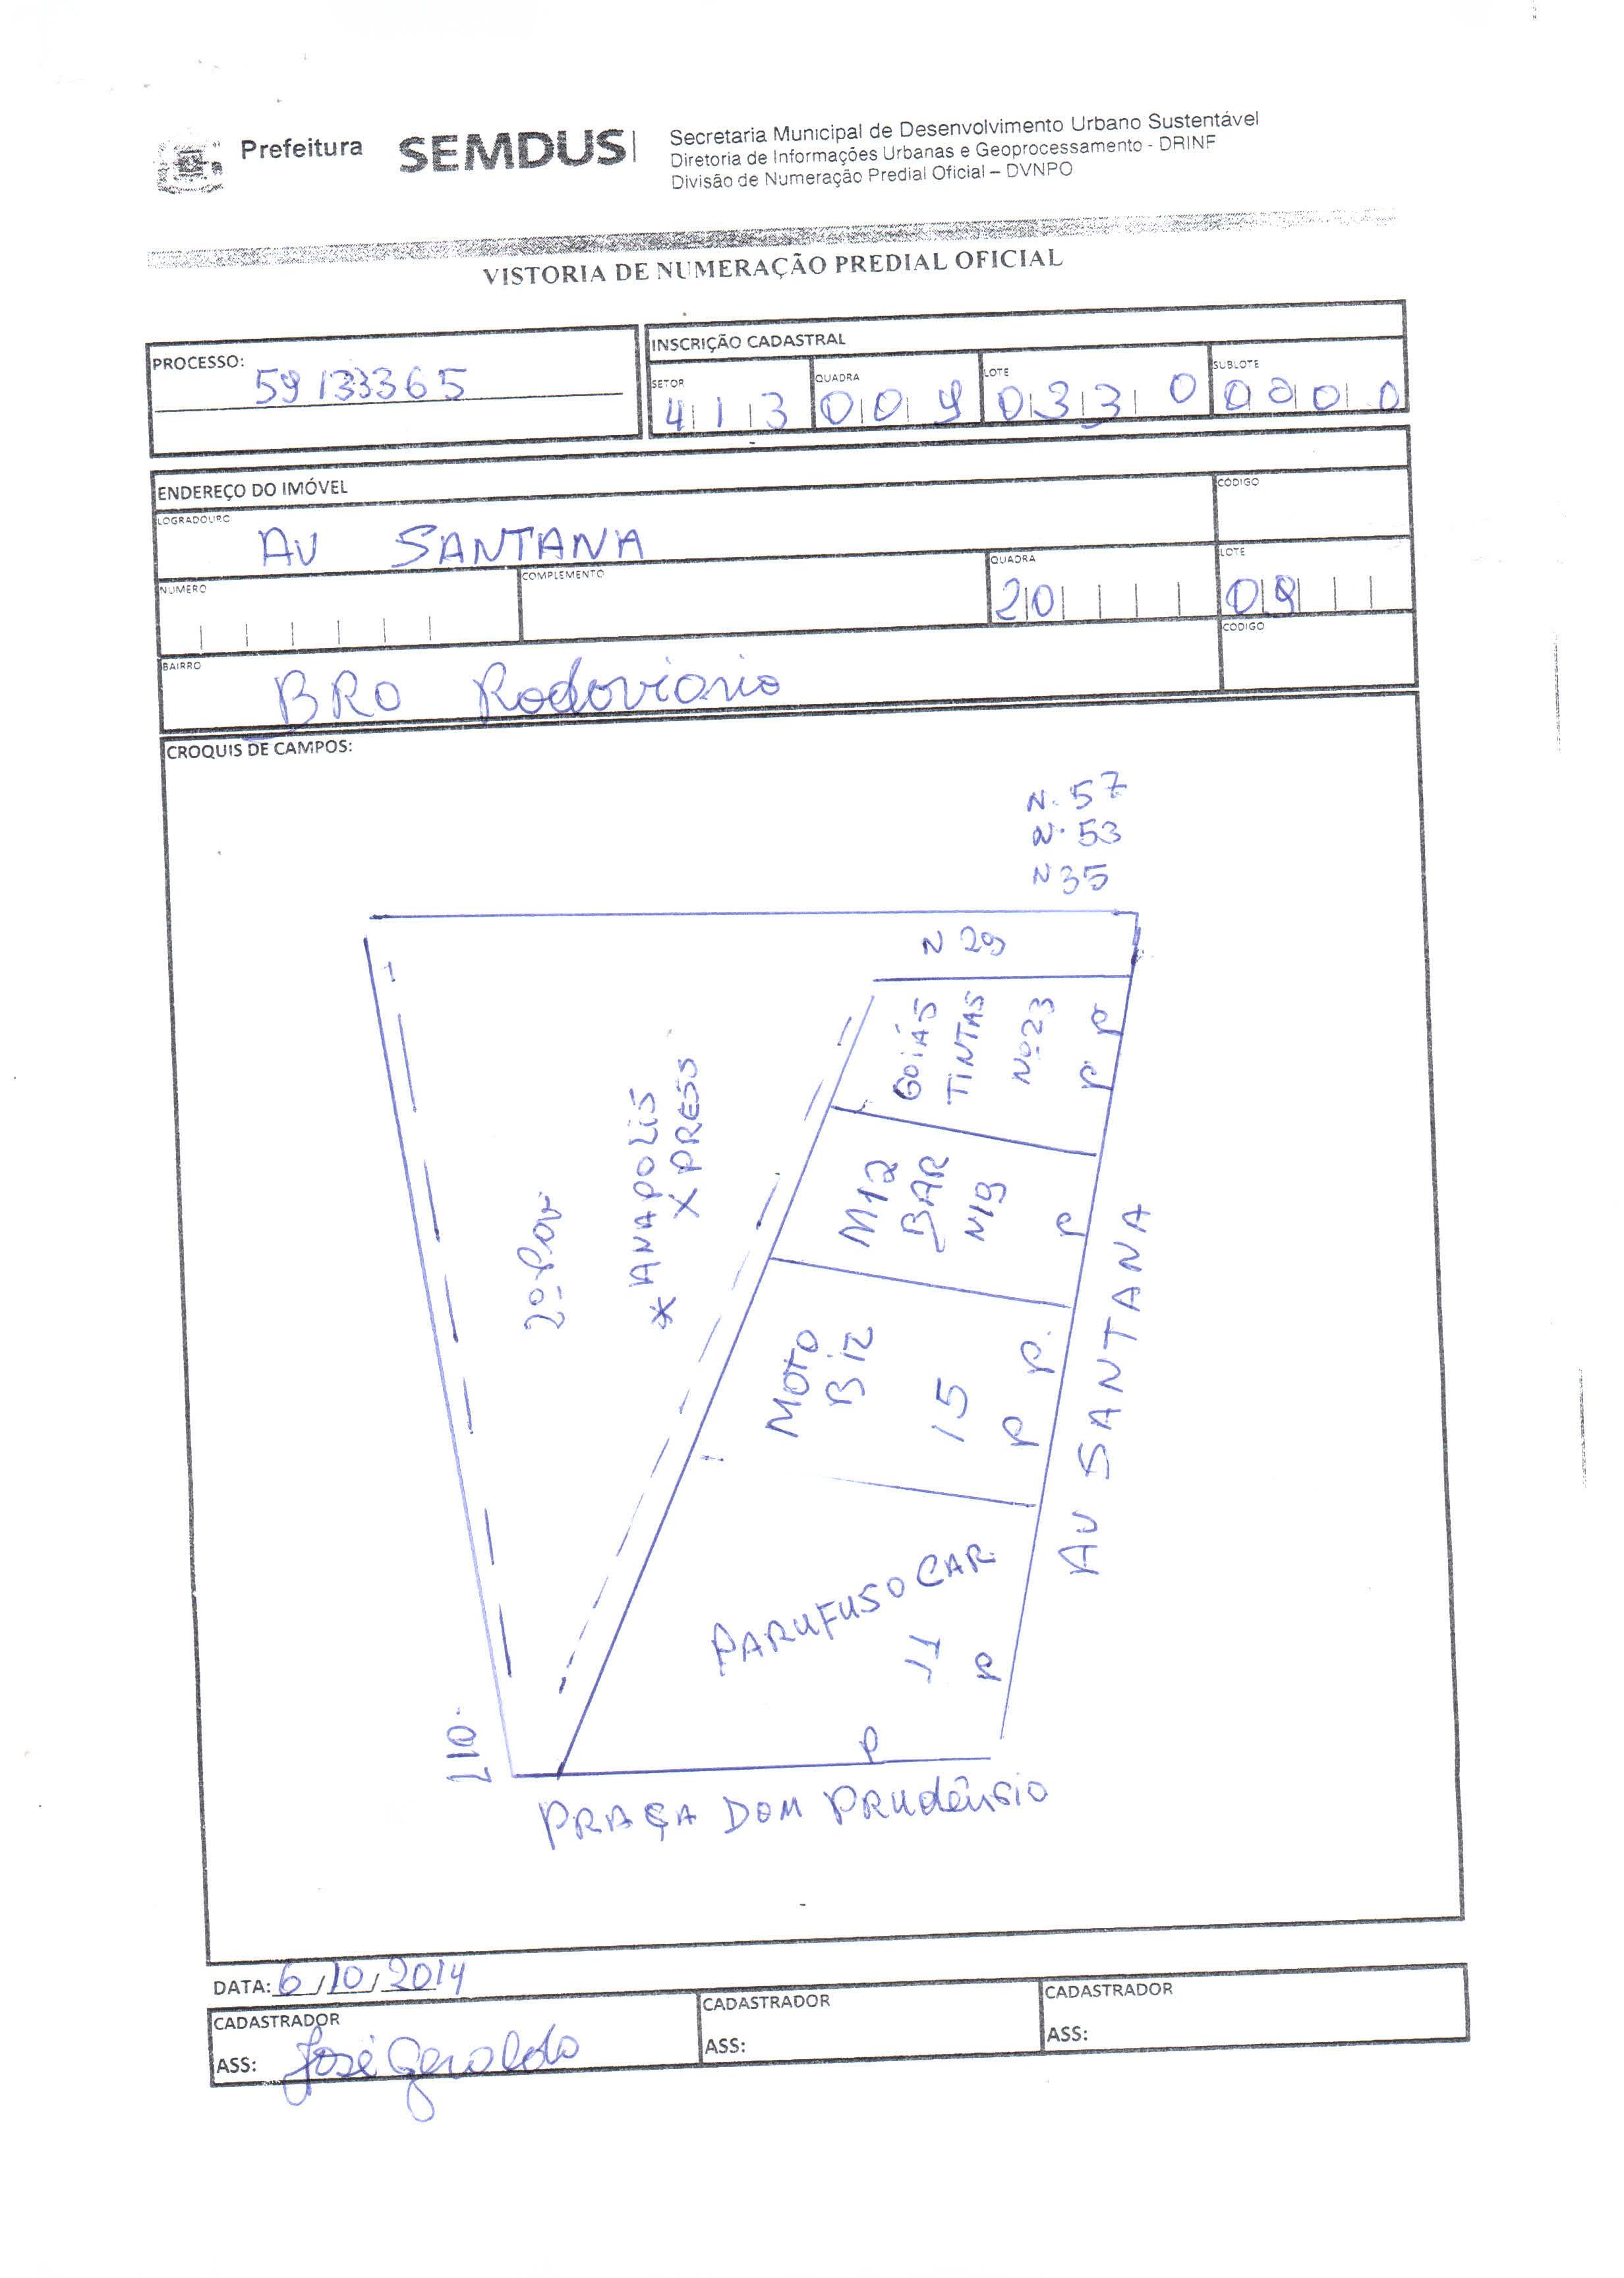 Prefeitura SEMDUS
Secretaria Municipal de Desenvolvimento Urbano Sustentável
Diretoria de Informações Urbanas e Geoprocessamento - DRINF
Divisão de Numeração Predial Oficial – DVNPO
VISTORIA DE NUMERAÇÃO PREDIAL OFICIAL
PROCESSO:
59133365
INSCRIÇÃO CADASTRAL
SETOR QUADRA LOTE SUBLOTE
413 009 0330 0000
ENDEREÇO DO IMÓVEL
LOGRADOURO CÓDIGO
AV SANTANA
NUMERO COMPLEMENTO QUADRA LOTE
20 09
BAIRRO CÓDIGO
BRO Rodoviario
CROQUIS DE CAMPOS:
N. 57
N. 53
N 35
N 29
GOIÁS
TINTAS
Nº 23
P P
M12
BAR
N19
P
2º Pav
* ANAPOLIS
XPRESS
MOTO
BIZ
15
P P.
AV SANTANA
PARUFUSO CAR.
11
P
L10.
P
PRAÇA DOM PRUdêNSIO
DATA: 6/10/2014
CADASTRADOR CADASTRADOR CADASTRADOR
ASS: José Geraldo ASS: ASS: